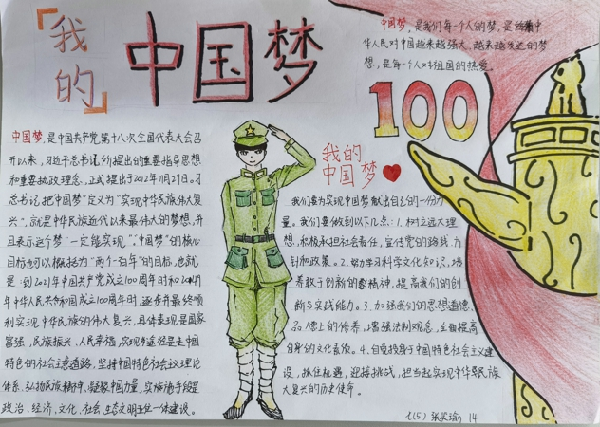 我的
中国梦
中国梦，是我们每一个人的梦，是
华人民对中国越来越强大，越来越发达的梦
想，是每一个人对祖国的热爱。
100
我的
中国梦
中国梦，是中国共产党第十八次全国代表大会召
开以来，习近平总书记所提出的重要指导思想
和重要执政理念，正式提出于2012年11月29日。习
总书记把"中国梦"定义为"实现中华民族伟大复
兴"，就是中华民族近代以来最伟大的梦想，并
且表示这个梦"一定能实现"。"中国梦"的核心
目标也可以概括为"两个一百年"的目标，也就
是：到2021年中国共产党成立100周年时和2049
年中华人民共和国成立100周年时，逐步并最终顺
利实现中华民族的伟大复兴，具体表现是国家
富强，民族振兴，人民幸福，实现途径是走中国
特色的社会主义道路，坚持中国特色社会主义理论
体系，弘扬民族精神，凝聚中国力量，实施手段是
政治、经济、文化、社会、生态文明五位一体建设。
我们要为实现中国梦献出自己的一份力
量。我们要做到以下几点：1.树立远大理
想，积极承担社会责任，宣传党的路线、方
针和政策。2.努力学习科学文化知识，培
养敢于创新的精神，提高我们的创
新与实践能力。3.加强我们的思想道德、
品德上的修养，增强法制观念，全面提高
自身的文化素质。4.自觉投身于中国特色社会主义建
设，抓住机遇，迎接挑战，担当起实现中华民族
大复兴的历史使命。
七(5) 张笑瑜 14